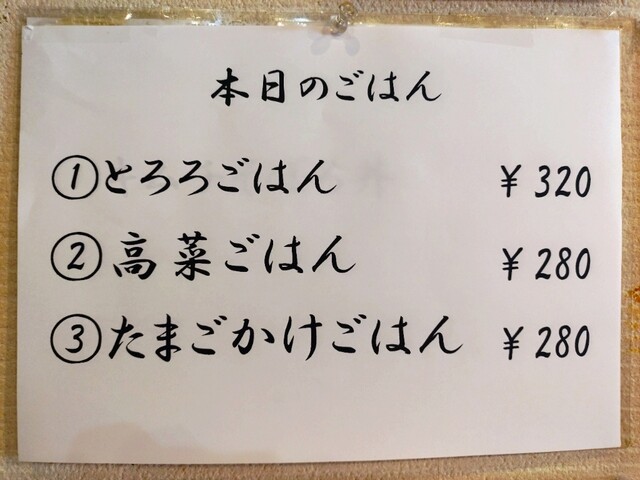 本日のごはん
①とろろごはん ¥320
②高菜ごはん ¥280
③たまごかけごはん ¥280